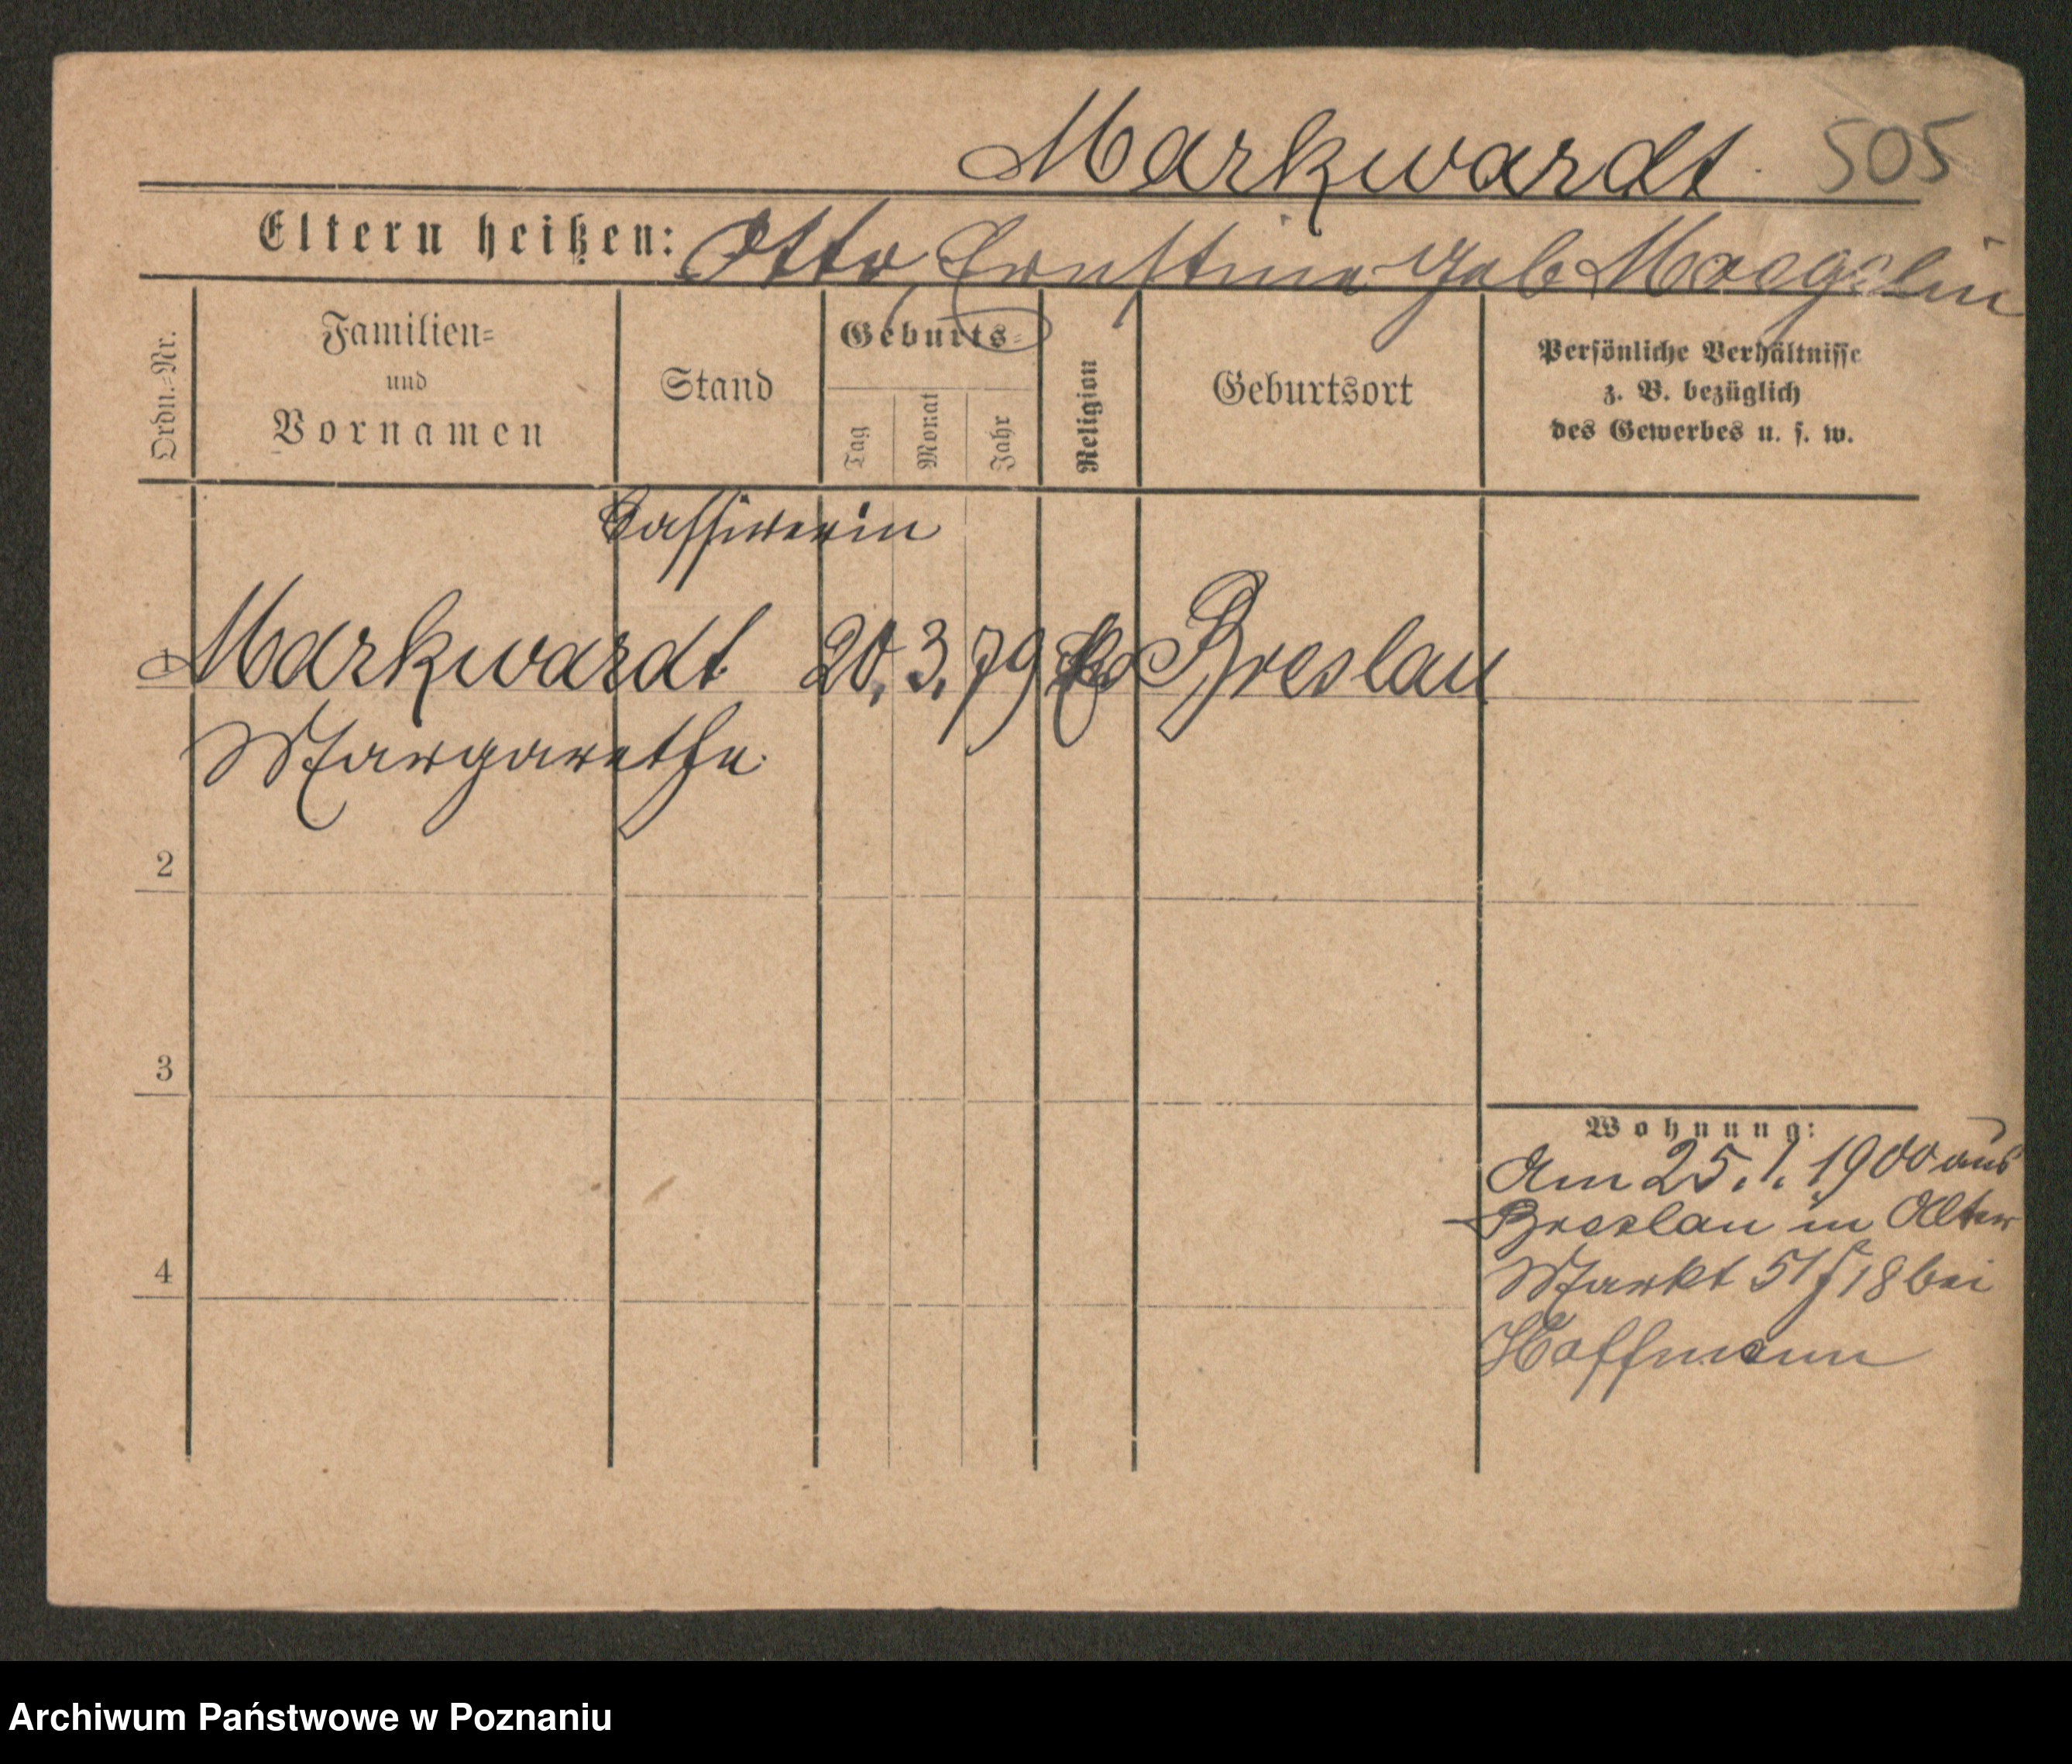 Markwardt. 505
Eltern heißen: Otto, Ernstine geb Moegelin
Ordn.=Nr.
Familien=
und
Vornamen
Stand
Geburts=
Tag
Monat
Jahr
Religion
Geburtsort
Persönliche Verhältnisse
z. B. bezüglich
des Gewerbes u. s. w.
Cassirerin
1 Markwardt 20. 3. 79 Breslau
Margarethe
2
3
4
Wohnung:
Am 25. 1. 1900 aus
Breslau in Alter
Markt 51 18 bei
Hoffmann
Archiwum Państwowe w Poznaniu